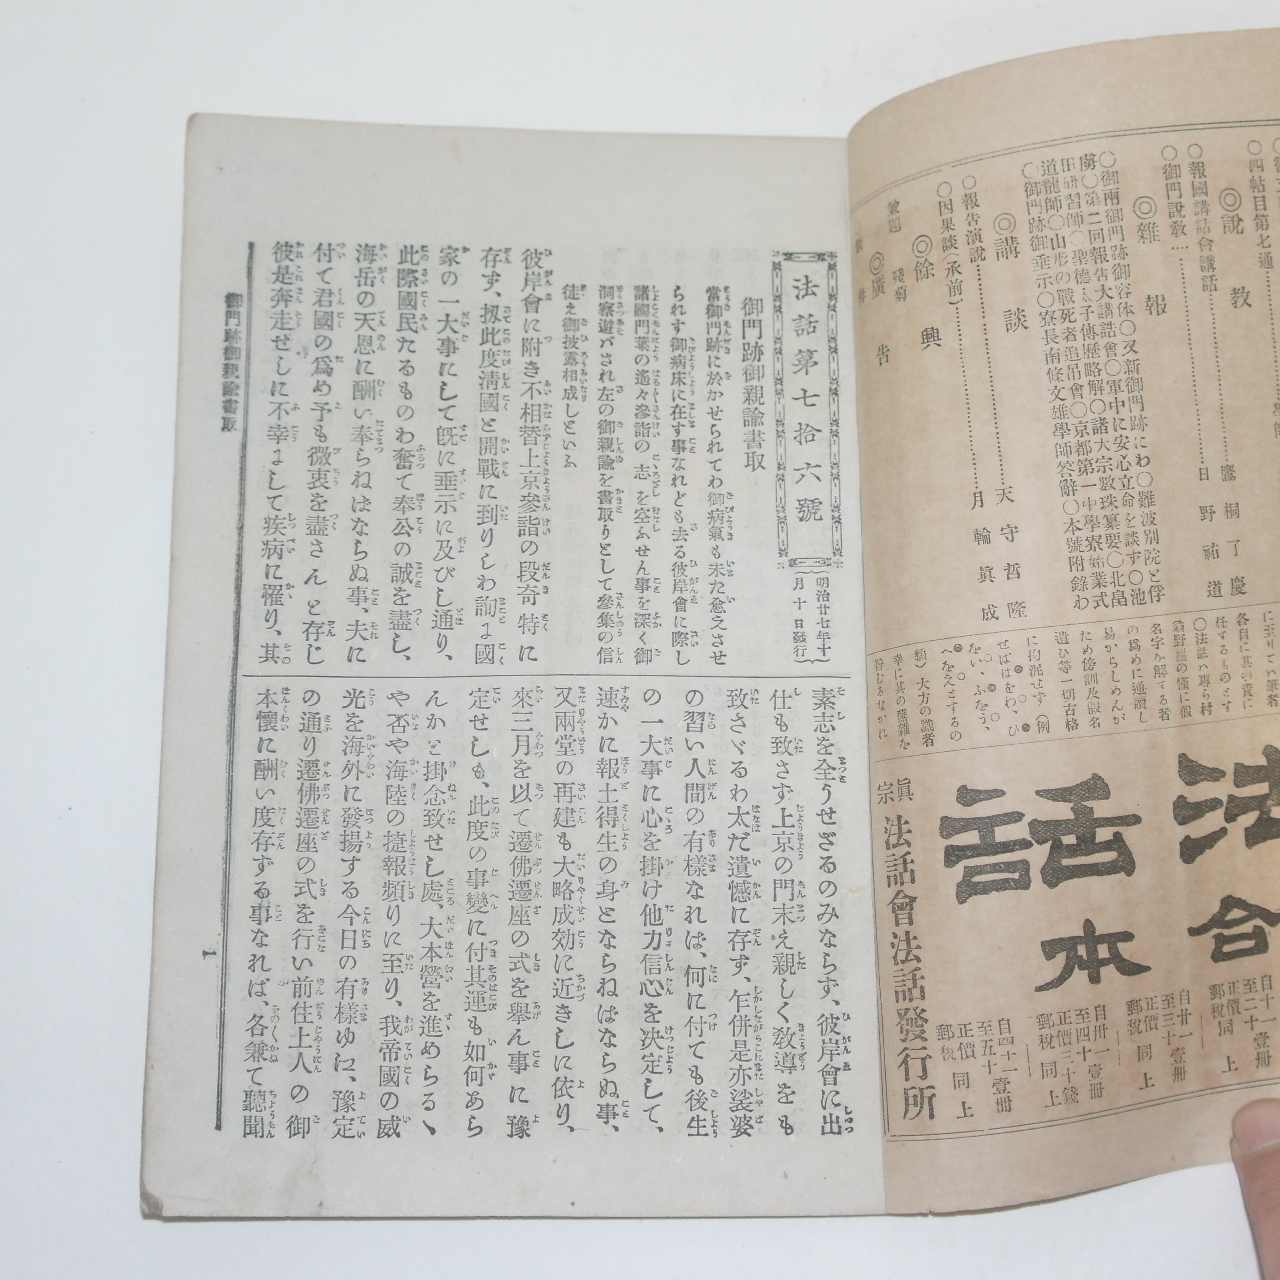 ◎説教
○報國講話會講話
鷹桐了慶
○御門説教
日野祐道
◎雜報
○御兩御門跡御容体○又新御門跡にわ○難波別院と俘
虜○第二回報告大講話會○軍中に安心立命を談ず○池
田研習師○聖德太子傳歷略解○諸大宗數珠纂要○北畠
道龍師○山形の戰死者追吊會○京都第一中學寮始業式
○御門跡御垂示○寮長南條文雄學師答辭○本號附錄わ
◎講談
天守哲隆
○報告演説
月輪眞成
○因果談(承前)
◎餘興
◎廣告
任するものとす
○法話ハ專ら村
名字を解する者
易からしめんが
の爲めに通讀し
ため傍訓及假名
遣ひ等一切古格
に拘泥せず(例
せばはをわ、ひ
をい、ふをう、
へをえとするの
類)大方の識者
幸に其の蕪雜を
咎むるなかれ
法話
合本
自十一壹册
至二十
正價同上
郵稅
自廿一壹册
至三十
正價同上
郵稅
自卅一壹册
至四十
正價三十錢
郵稅同上
自四十一壹册
至五十
正價同上
郵稅
眞宗法話會法話發行所
法話第七拾六號
明治廿七年十一
月十日發行
御門跡御親諭書取
當御門跡に於かせられてわ御病氣も未た愈えさせ
られす御病床に在す事なれども去る彼岸會に際し
諸國門葉の遙々參詣の志を空ふせん事を深く御
洞察遊バされ左の御親諭を書取りとして參集の信
徒え御披露相成しといふ
彼岸會に附き不相替上京參詣の段奇特に
存ず、扨此度淸國と開戰に到りしわ詢よ國
家の一大事にして旣に垂示に及びし通り、
此際國民たるものわ奮て奉公の誠を盡し、
海岳の天恩に酬い奉らねはならぬ事、夫に
付て君國の爲め予も微衷を盡さんと存じ
彼是奔走せしに不幸よして疾病に罹り、其
素志を全うせざるのみならず、彼岸會に出
仕も致さず上京の門末え親しく敎導をも
致さゞるわ太だ遺憾に存ず、乍併是亦娑婆
の習い人間の有樣なれば、何に付ても後生
の一大事に心を掛け他力信心を決定して、
速かに報土得生の身とならねばならぬ事、
又兩堂の再建も大略成効に近きしに依り、
來三月を以て遷佛遷座の式を擧ん事に豫
定せしも、此度の事變に付其運も如何あら
んかと掛念致せし處、大本營を進めらるゝ
や否や海陸の捷報頻りに至り、我帝國の威
光を海外に發揚する今日の有樣ゆに、豫定
の通り遷佛遷座の式を行い前住上人の御
本懷に酬い度存ずる事なれば、各兼て聽聞
御門跡御親諭書取
一